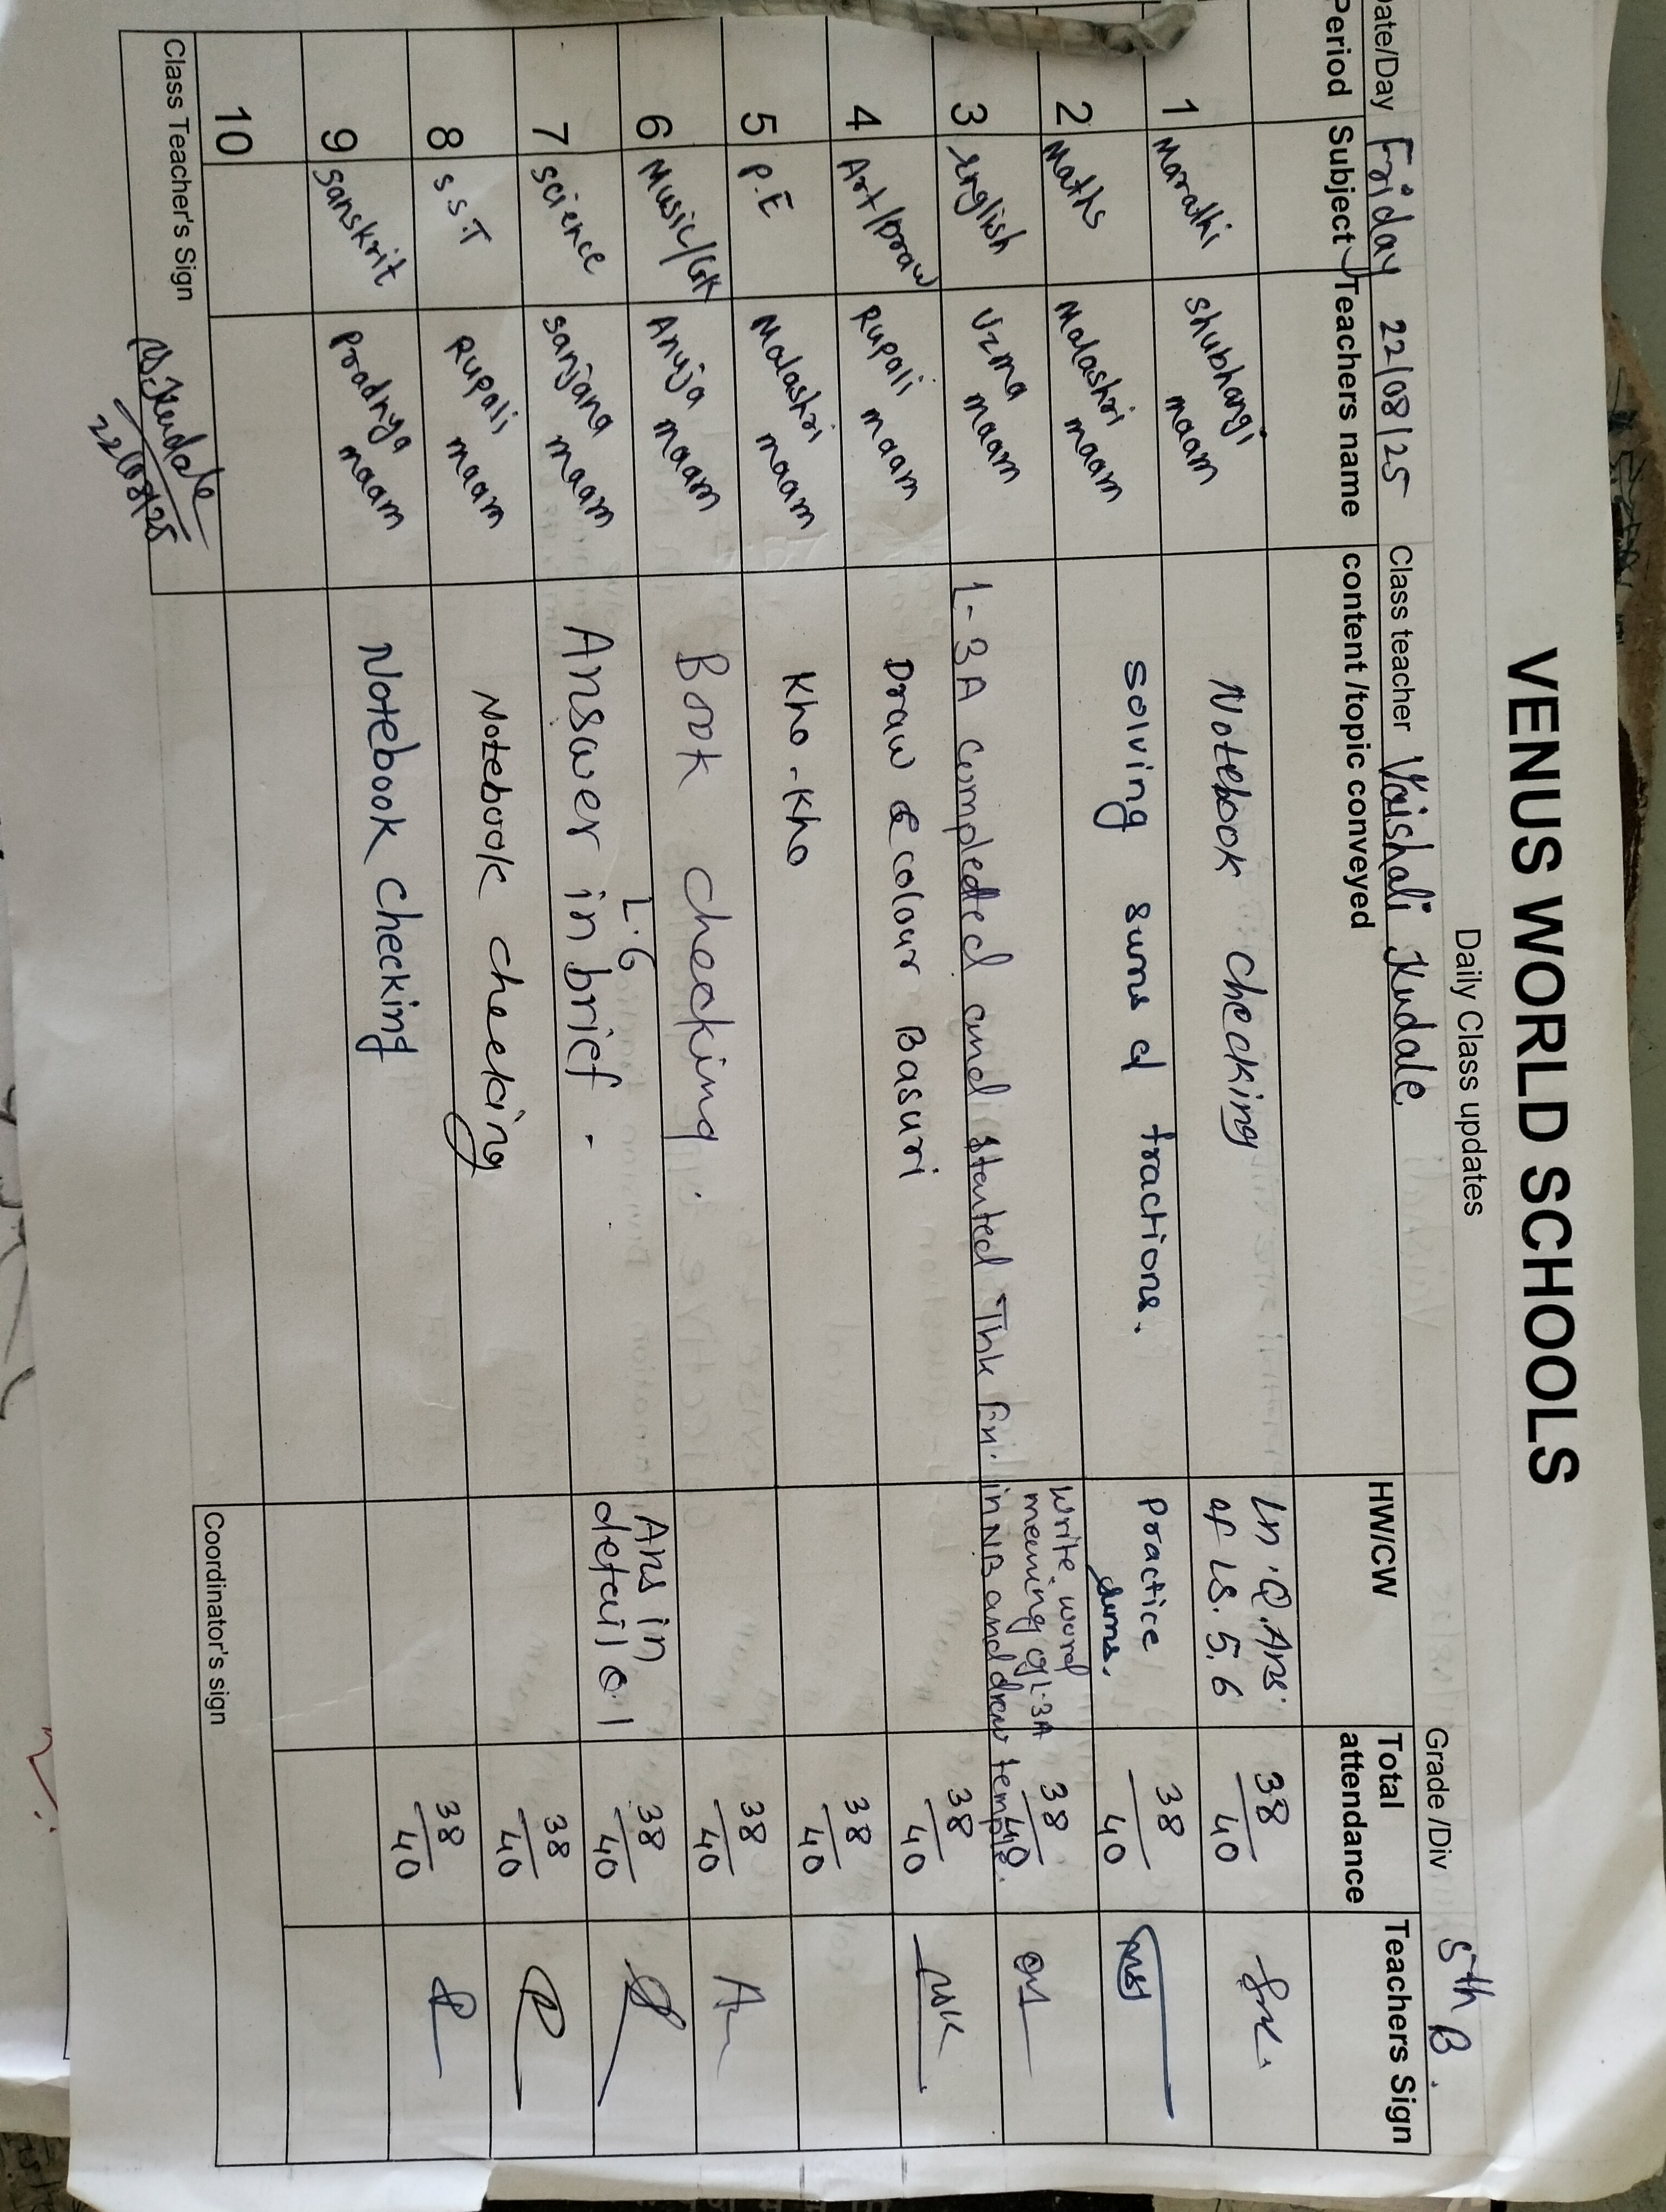 VENUS WORLD SCHOOLS
Daily Class updates
Grade /Div 5th B.
Date/Day Friday 22/08/25 Class teacher Vaishali Kudale.
Period Subject Teachers name content /topic conveyed HW/CW Total attendance Teachers Sign
1 Marathi Shubhangi maam Notebook checking Ln. Q. Ans. of Ls. 5,6 38/40
2 Maths Malashri maam Solving sums of fractions. Practice sums. 38/40
3 English Uzma maam L-3A completed and started Think En. Write word meaning of L.3A in NB and draw temple. 38/40
4 Art/Draw Rupali maam Draw & colour Basuri 38/40
5 P.E Malashri maam Kho-Kho 38/40
6 Music/GK Anuja maam Book checking. 38/40
7 Science Sanjana maam L.6 Answer in brief. Ans in detail Q.1 38/40
8 S.S.T Rupali maam Notebook checking 38/40
9 Sanskrit Pradnya maam Notebook checking 38/40
10
Class Teacher's Sign V.Kudale 22/08/25 Coordinator's sign